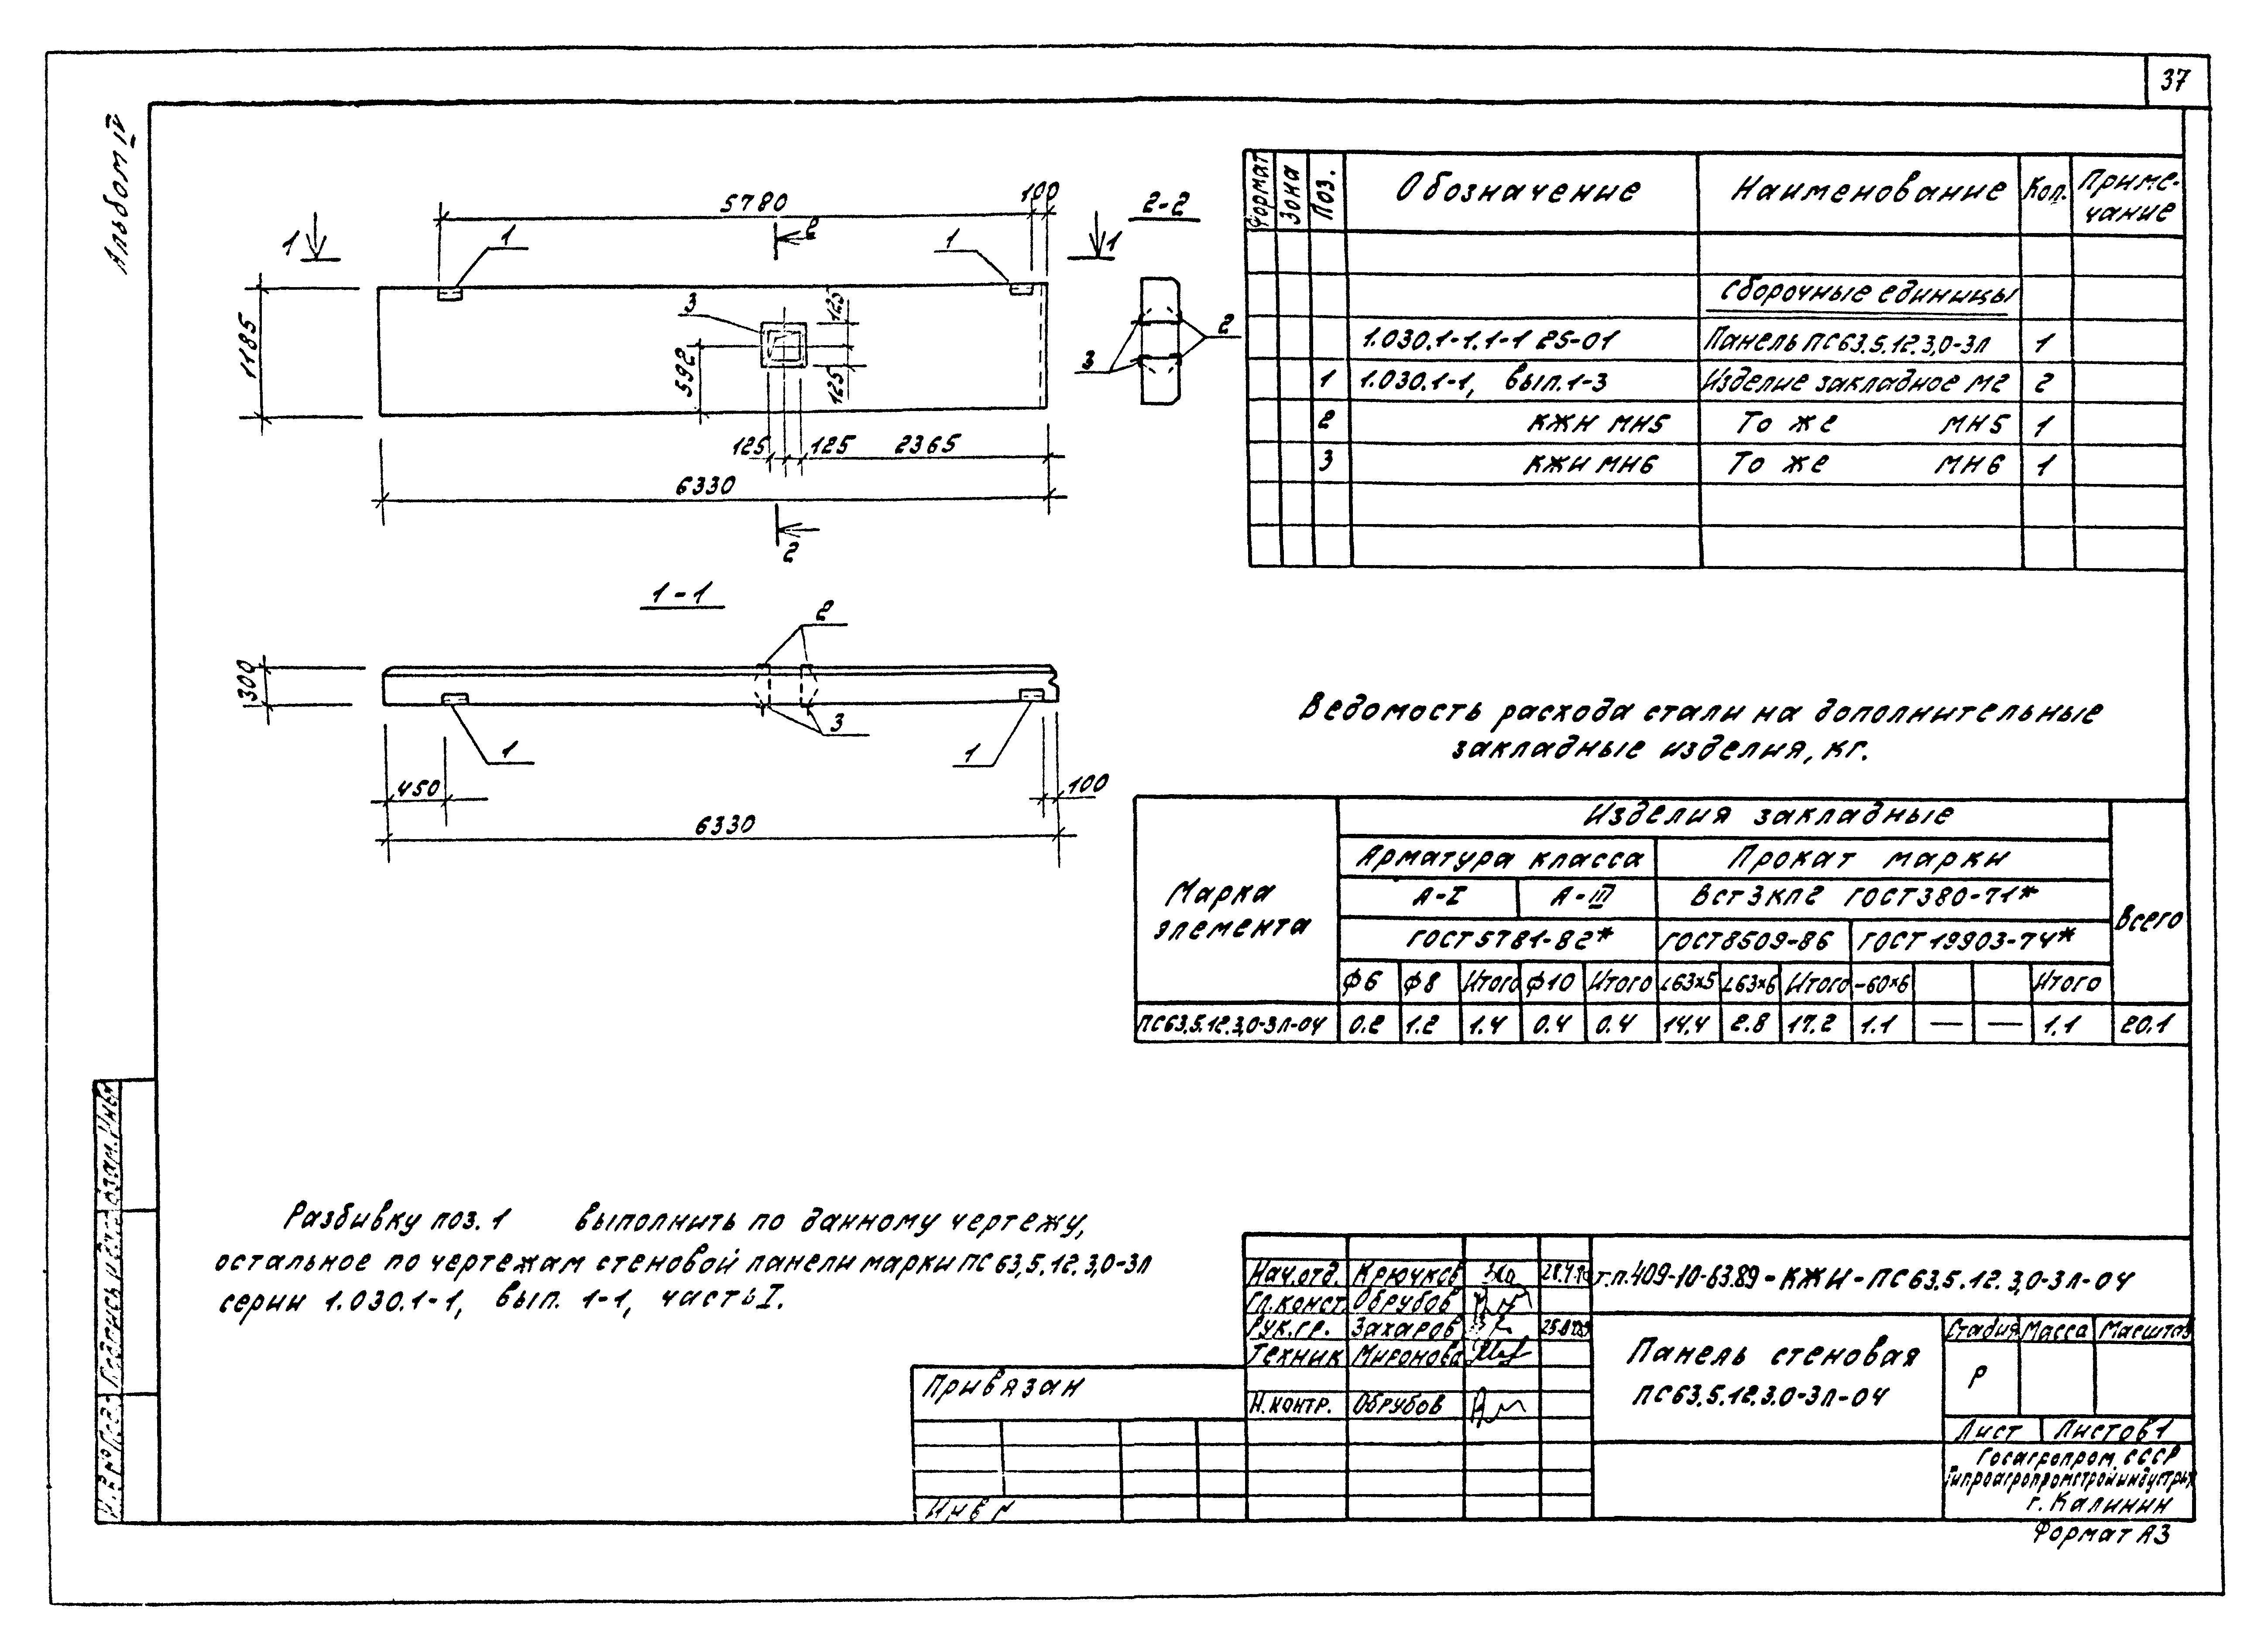 37
Альбом IV
5780
100
2-2
1
1
1
2
1
3
125
1185
592
125
2
3
125
125
2365
6330
2
1-1
2
300
3
1
1
450
100
6330
Формат
Зона
Поз.
Обозначение
Наименование
Кол.
Приме-
чание
Сборочные единицы
1.030.1-1.1-1 25-01 Панель ПС63.5.12.3,0-3л 1
1 1.030.1-1, вып.1-3 Изделие закладное М2 2
2 КЖИ МН5 То же МН5 1
3 КЖИ МН6 То же МН6 1
Ведомость расхода стали на дополнительные
закладные изделия, кг.
Марка
элемента
Изделия закладные
Всего
Арматура класса Прокат марки
А-I А-III Вст3кп2 ГОСТ380-71*
ГОСТ5781-82* ГОСТ8509-86 ГОСТ19903-74*
ф6 ф8 Итого ф10 Итого ∟63х5 ∟63х6 Итого -60х6 Итого
ПС63.5.12.3,0-3л-04 0.2 1.2 1.4 0.4 0.4 14,4 2.8 17.2 1.1 — — 1.1 20.1
Разбивку поз. 1 выполнить по данному чертежу,
остальное по чертежам стеновой панели марки ПС 63,5.12.3,0-3л
серии 1.030.1-1, вып. 1-1, часть I.
Взам. Инв
Подпись и дата
Нач.отд. Крючков
Гл.конст. Обрубов
Рук.гр. Захаров
Техник Миронова
Н.контр. Обрубов
т.п.409-10-63.89-КЖИ-ПС63.5.12.3,0-3л-04
Панель стеновая
ПС63.5.12.3.0-3л-04
Стадия Масса Масштаб
Р
Лист Листов 1
Госагропром СССР
Гипроагропромстройиндустрия
г. Калинин
Привязан
Инв №
Формат А3